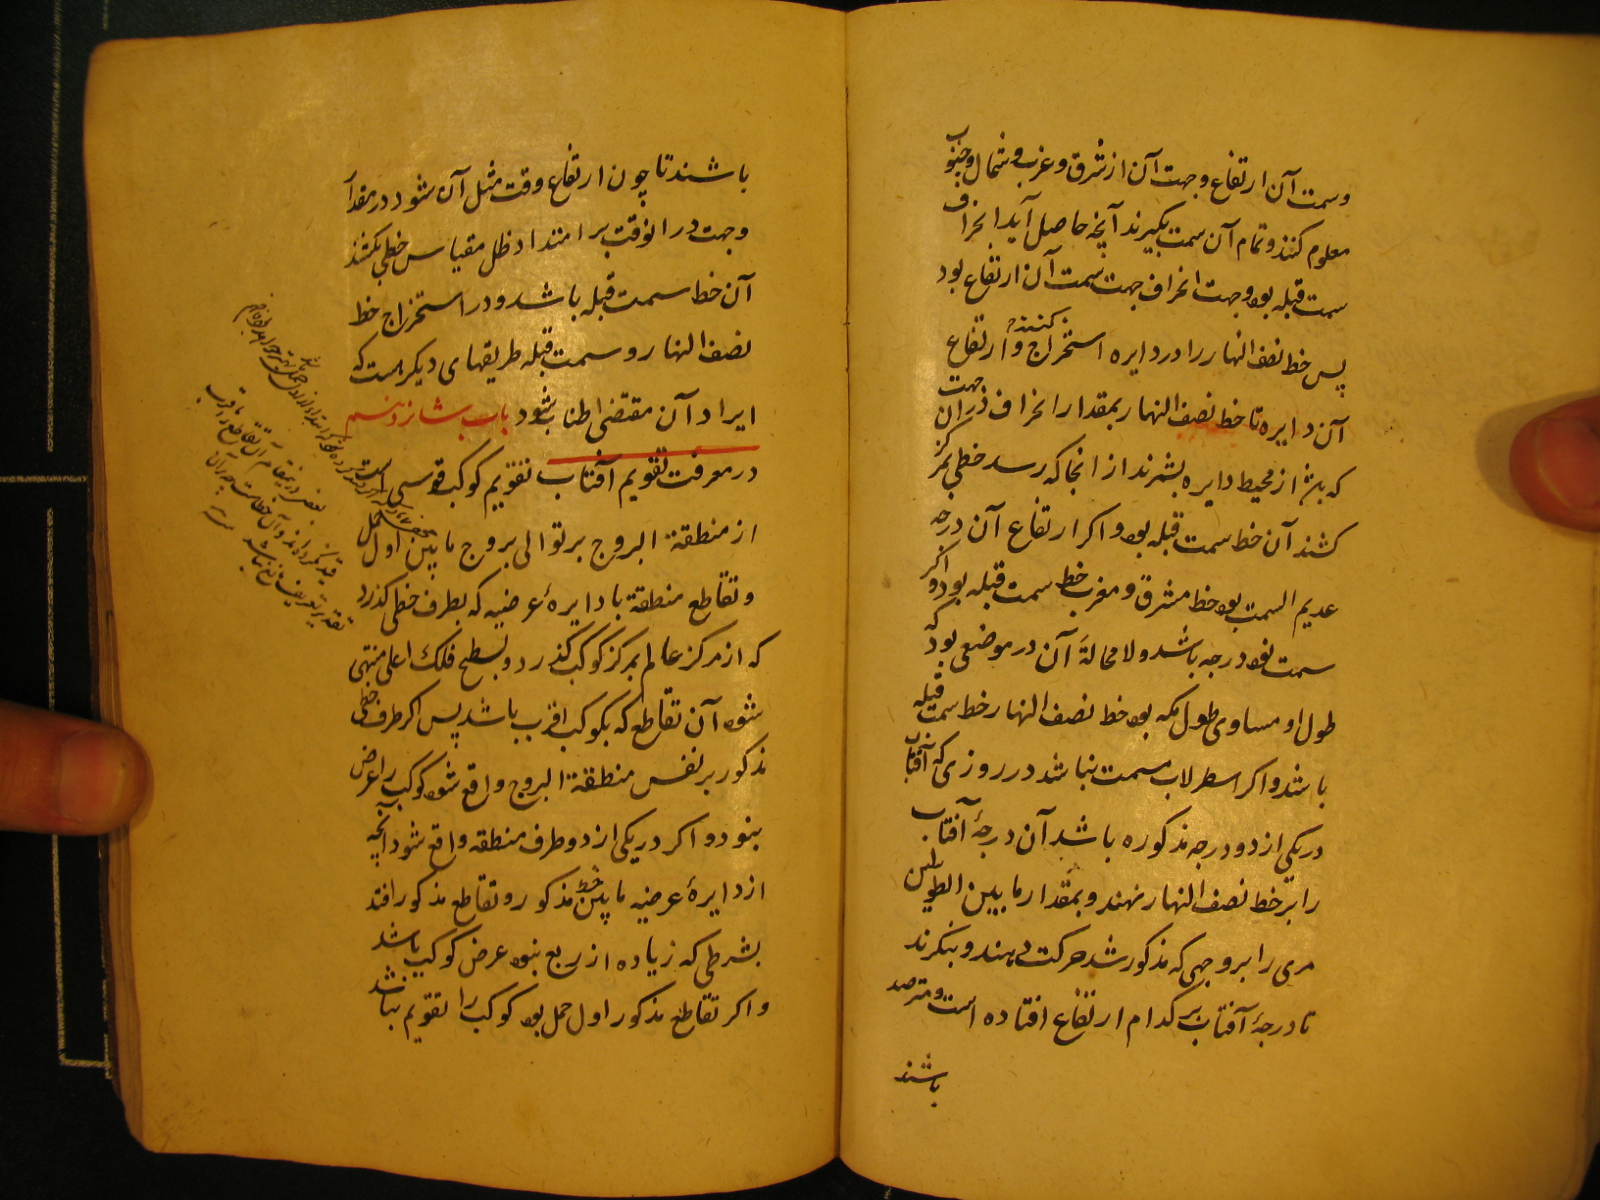 وسمت آن ارتفاع وجهت آن از شرق وغرب وشمال وجنوب
معلوم کنند وتمام آن سمت بگیرند آنچه حاصل آید انحراف
سمت قبله بود وجهت انحراف جهت سمت آن ارتفاع بود
پس خط نصف النهار را در دایره استخراج کنند و ارتفاع
آن دایره تا خط نصف النهار بمقدار انحراف در آن جهت
که بدٌ از محیط دایره بشمرند از انجا که رسد خطی بمرکز
کشند آن خط سمت قبله بود واکر ارتفاع آن درجه
عدیم السمت بود خط مشرق ومغرب خط سمت قبله بود واکر
سمت نود درجه باشد ولا محالة آن در موضعی بود که
طول او مساوی طول مکه بود خط نصف النهار خط سمت قبله
باشد واکر اسطرلاب مسمت نباشد در روزی که آفتاب
در یکی از دو درجه مذکوره باشد آن درجهٔ آفتاب
را بر خط نصف النهار نهند وبمقدار ما بین الطولین
مری را بروجهی که مذکور شد حرکت دهند وبنکرند
تا درجهٔ آفتاب بر کدام ارتفاع افتاده است ومترصد
باشند
باشند تا چون ارتفاع وقت مثل آن شود در مقدار
وجهت در انوقت بر امتداد ظل مقیاس خطی بکشند
آن خط سمت قبله باشد ودر استخراج خط
نصف النهار وسمت قبله طریقهای دیکر هست که
ایراد آن مقتضی اطناب شود باب شانزدهم
در معرفت تقویم آفتاب تقویم کوکب قوسی است
از منطقة البروج بر توالی بروج ما بین اول حمل
وتقاطع منطقة با دایرهٔ عرضیه که بطرف خطی کذرد
که از مرکز عالم بمرکز کوکب کذرد وبسطح فلک اعلی منتهی
شود آن تقاطع که بکوکب اقرب باشد پس اکر طرف خطی
مذکور بر نفس منطقة البروج واقع شود کوکب را عرض
نبود واکر در یکی از دو طرف منطقه واقع شود آنچه
از دایرهٔ عرضیه ما بین خط مذکور وتقاطع مذکور افتد
بشرطی که زیاده از ربع نبود عرض کوکب باشد
واکر تقاطع مذکور اول حمل بود کوکب را تقویم نباشد